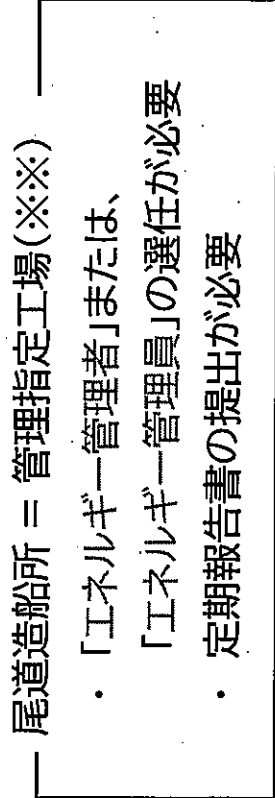 尾道造船所 = 管理指定工場(※※)
・「エネルギー管理者」または、
「エネルギー管理員」の選任が必要
・定期報告書の提出が必要